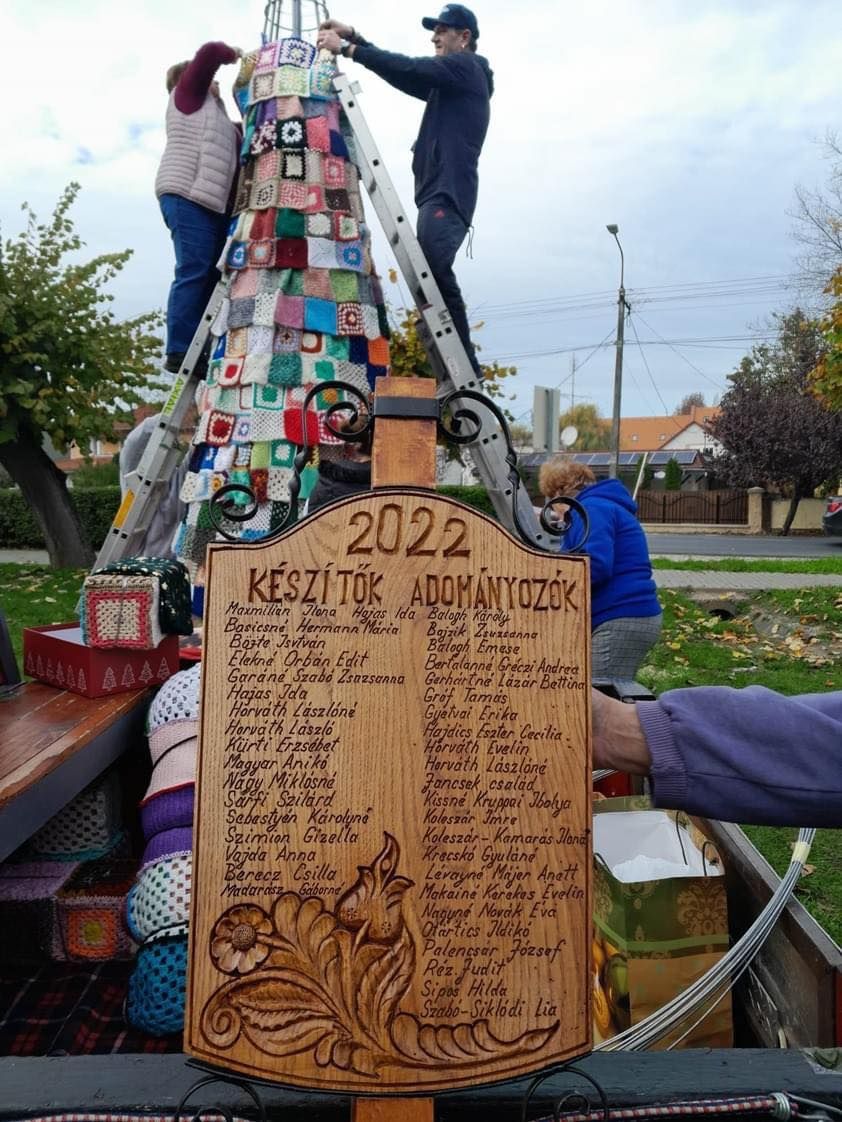 2022
KÉSZÍTŐK ADOMÁNYOZÓK
Maxmilián Ilona Hajas Ida
Basicsné Hermann Mária
Bőzte István
Elekné Orbán Edit
Garáné Szabó Zsuzsanna
Hajas Ida
Horváth Lászlóné
Horváth László
Kürti Erzsébet
Magyar Anikó
Nagy Miklósné
Sárfi Szilárd
Sebestyén Károlyné
Szimion Gizella
Vajda Anna
Berecz Csilla
Madarász Gáborné
Balogh Károly
Bajzik Zsuzsanna
Balogh Emese
Bertalanné Gréczi Andrea
Gerhártné Lázár Bettina
Gróf Tamás
Gyétvai Erika
Hajdics Eszter Cecília
Horváth Evelin
Horváth Lászlóné
Jancsek család
Kissné Kruppai Ibolya
Koleszár Imre
Koleszár-Kamarás Ilona
Krecskó Gyuláné
Lévayné Májer Anett
Makainé Kerekes Evelin
Nagyné Novák Éva
Otártics Ildikó
Palencsár József
Réz Judit
Sipos Hilda
Szabó-Siklódi Lia